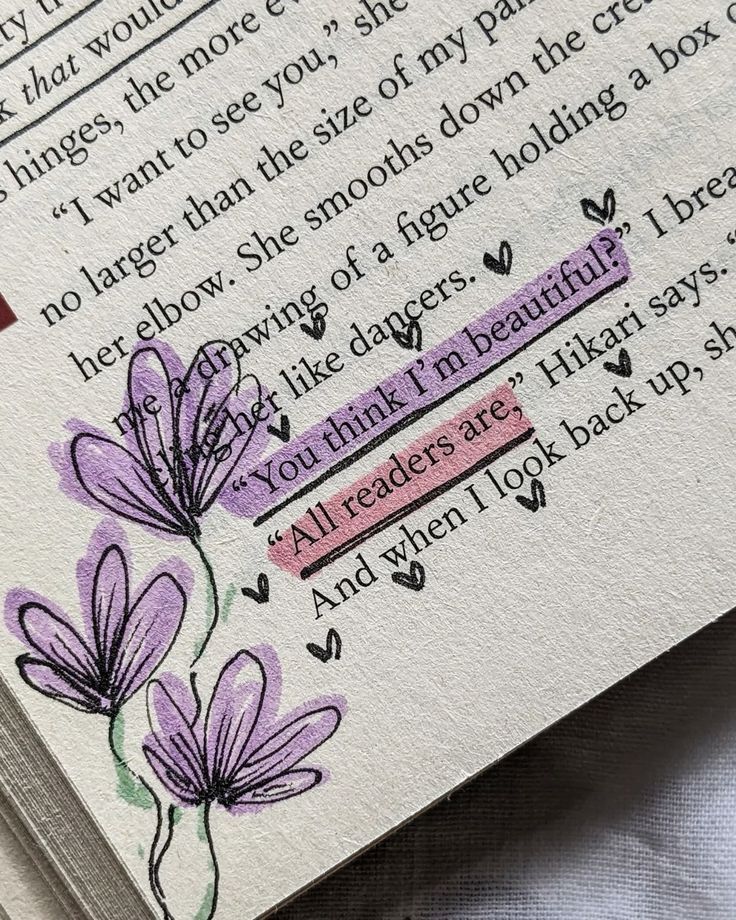 that would
hinges, the more
“I want to see you,” she
no larger than the size of my
her elbow. She smooths down the
me a drawing of a figure holding a box
her like dancers.
“You think I’m beautiful?” I
“All readers are,” Hikari says. “
And when I look back up,